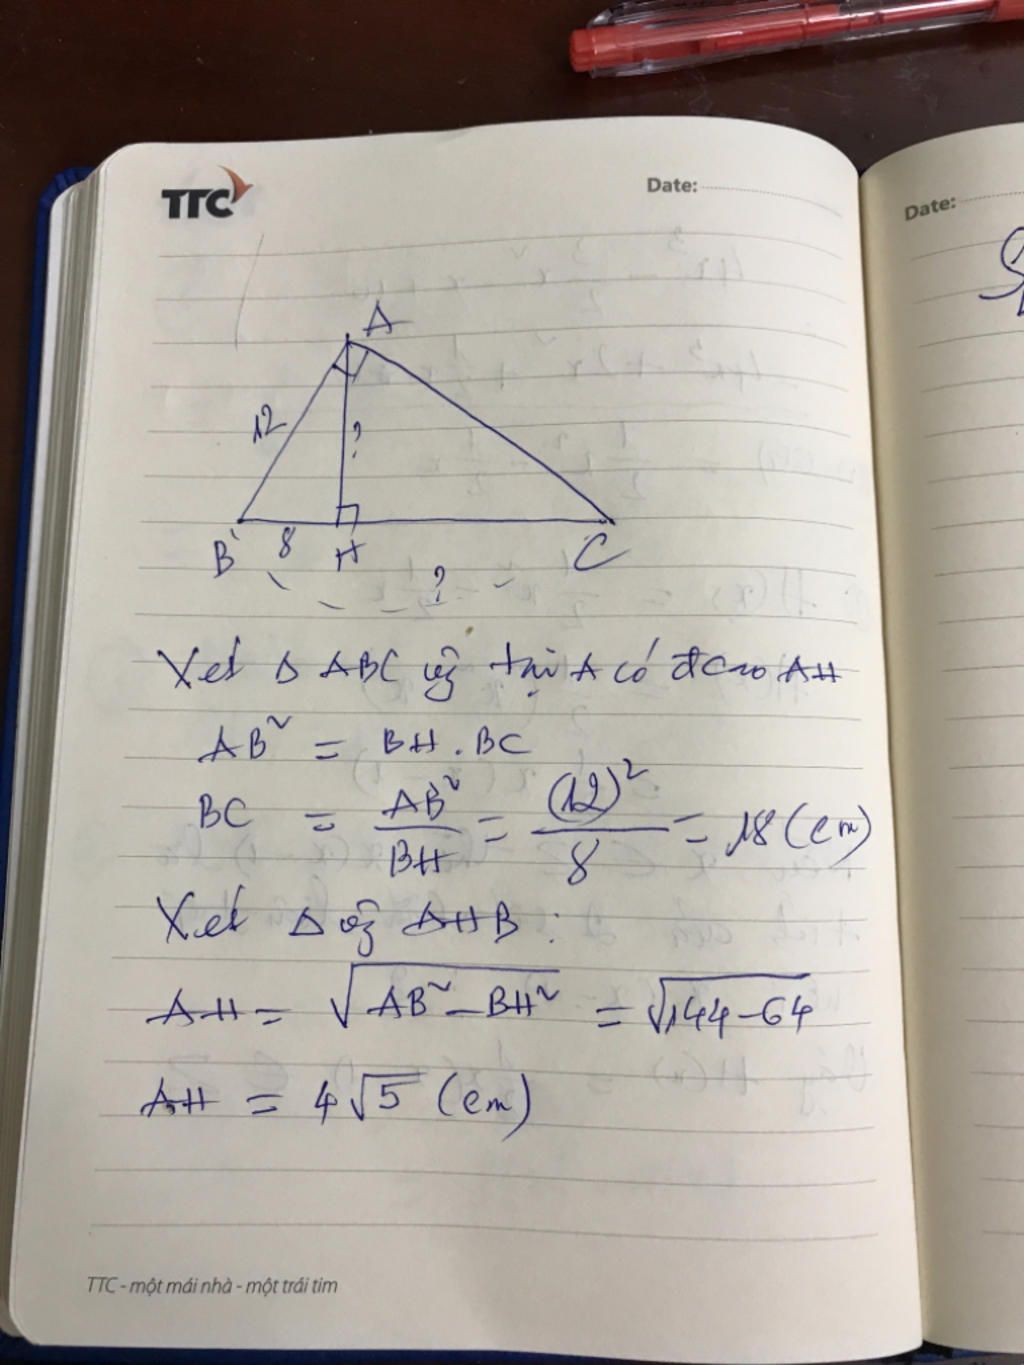 TTC
Date:
Date:
A
12
?
B
8
H
C
?
Xét Δ ABC vg tại A có đcao AH
AB² = BH . BC
BC = AB²/BH = (12)²/8 = 18 (cm)
Xét Δ vg AHB :
AH = √(AB² - BH²) = √(144-64)
AH = 4√5 (cm)
TTC - một mái nhà - một trái tim